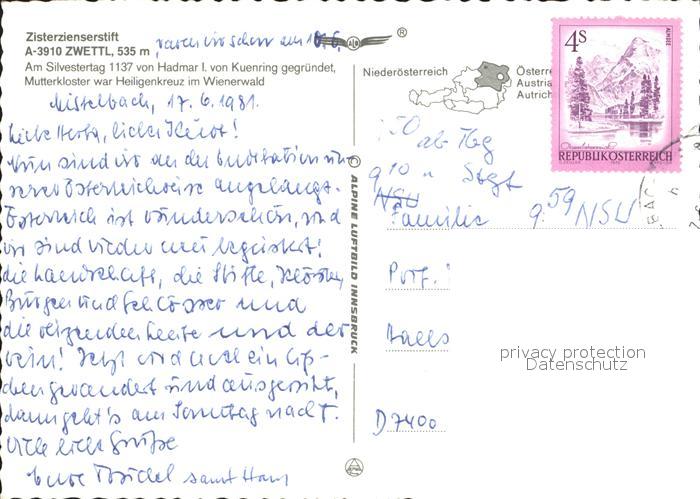 Zisterzienserstift
A-3910 ZWETTL, 535 m, waren wir schon am 16.6.
Am Silvestertag 1137 von Hadmar I. von Kuenring gegründet,
Mutterkloster war Heiligenkreuz im Wienerwald
Mistelbach, 17.6.1981.
Liebe Herta, lieber Kurt!
Nun sind wir an der Endstation un-
serer Österreichreise angelangt.
Österreich ist wunderschön, und
wir sind wieder neu begeistert!
die Landschaft, die Stifte, Klöster,
Burgen und Schlösser und
die reizenden Leute und der
Wein! Jetzt wird noch ein biß-
chen gewandert und ausgeruht,
dann geht's am Sonntag nach T.
Viele liebe Grüße
Eure Bärbel samt Hans
®
4S
ALMSEE
REPUBLIK ÖSTERREICH
Niederösterreich
Österre
Austria
Autrich
ab Hbg
9 10 n Stgt
NSU
Familie 9.59 NSU
Prof.
D 7400
© ALPINE LUFTBILD INNSBRUCK
privacy protection
Datenschutz